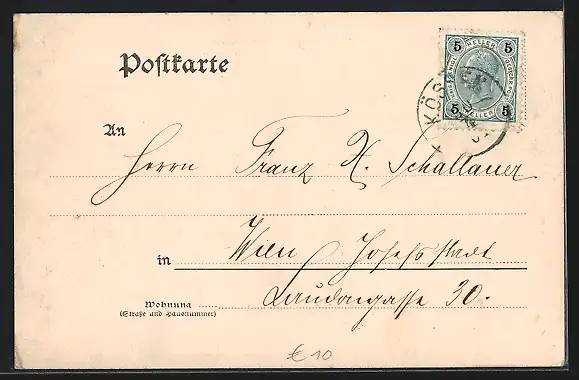 Postkarte
5 HELLER 5
5 HELLER 5
KÖS
An
Herrn Franz X. Schallauer
in Wien Josefsstadt
Wohnung Laudongasse 20.
(Straße und Hausnummer)
€ 10